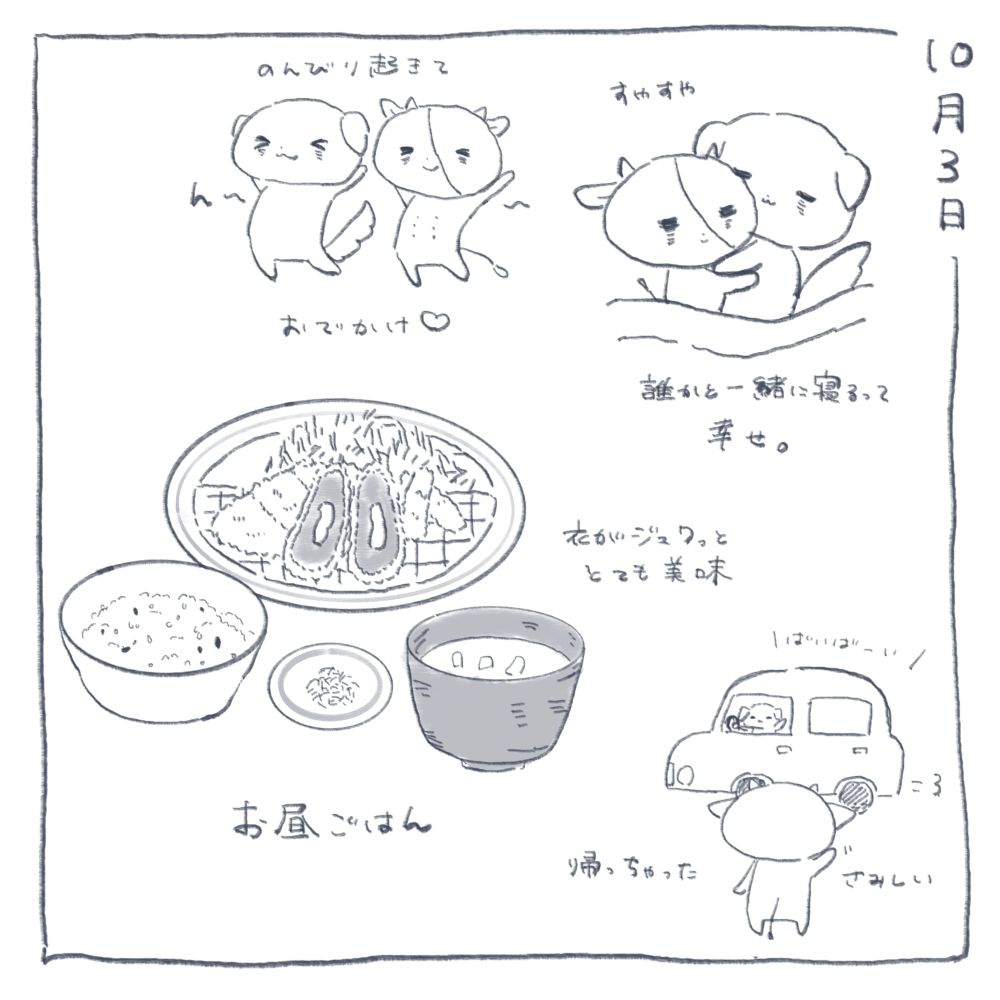 10月3日
すやすや
誰かと一緒に寝るって
幸せ。
のんびり起きて
ん〜
〜
おでかけ♡
衣がジュワっと
とても美味
お昼ごはん
\ばいばーい/
帰っちゃった
さみしい